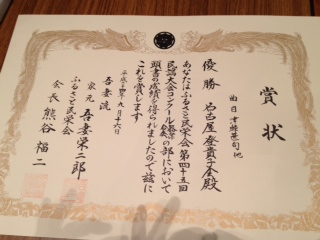 賞状
曲目 津軽甚句他
優勝 名古屋登貴子金殿
あなたはふるさと民学会第四十五回
民謡大会コンクール の部において
頭書の成績を得られましたので茲に
これを賞します
平成 四年九月十六日
吾妻流
家元 吾妻栄二郎
ふるさと民学会
会長 熊谷福二